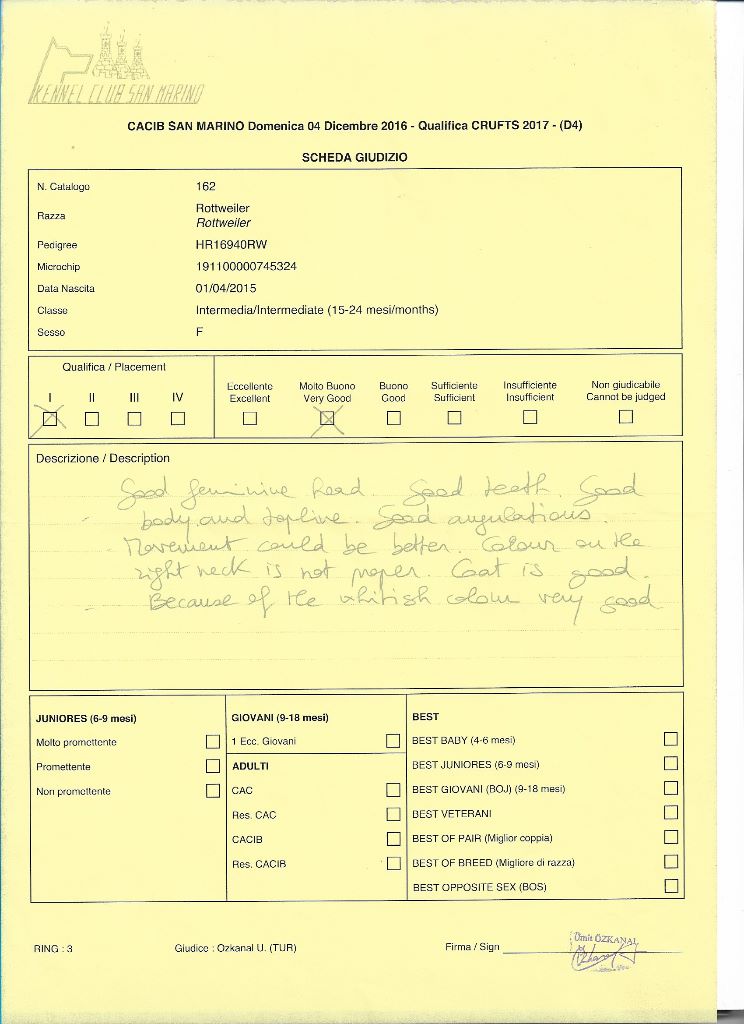 KENNEL CLUB SAN MARINO
CACIB SAN MARINO Domenica 04 Dicembre 2016 - Qualifica CRUFTS 2017 - (D4)
SCHEDA GIUDIZIO
N. Catalogo 162
Razza Rottweiler
Rottweiler
Pedigree HR16940RW
Microchip 191100000745324
Data Nascita 01/04/2015
Classe Intermedia/Intermediate (15-24 mesi/months)
Sesso F
Qualifica / Placement
I II III IV
Eccellente Molto Buono Buono Sufficiente Insufficiente Non giudicabile
Excellent Very Good Good Sufficient Insufficient Cannot be judged
Descrizione / Description
Good feminine head. Good teeth. Good
body and topline. Good angulations.
Movement could be better. Colour on the
right neck is not proper. Coat is good.
Because of the whitish colour very good
JUNIORES (6-9 mesi)
Molto promettente
Promettente
Non promettente
GIOVANI (9-18 mesi)
1 Ecc. Giovani
ADULTI
CAC
Res. CAC
CACIB
Res. CACIB
BEST
BEST BABY (4-6 mesi)
BEST JUNIORES (6-9 mesi)
BEST GIOVANI (BOJ) (9-18 mesi)
BEST VETERANI
BEST OF PAIR (Miglior coppia)
BEST OF BREED (Migliore di razza)
BEST OPPOSITE SEX (BOS)
RING : 3 Giudice : Ozkanal U. (TUR) Firma / Sign
Ümit ÖZKANAL